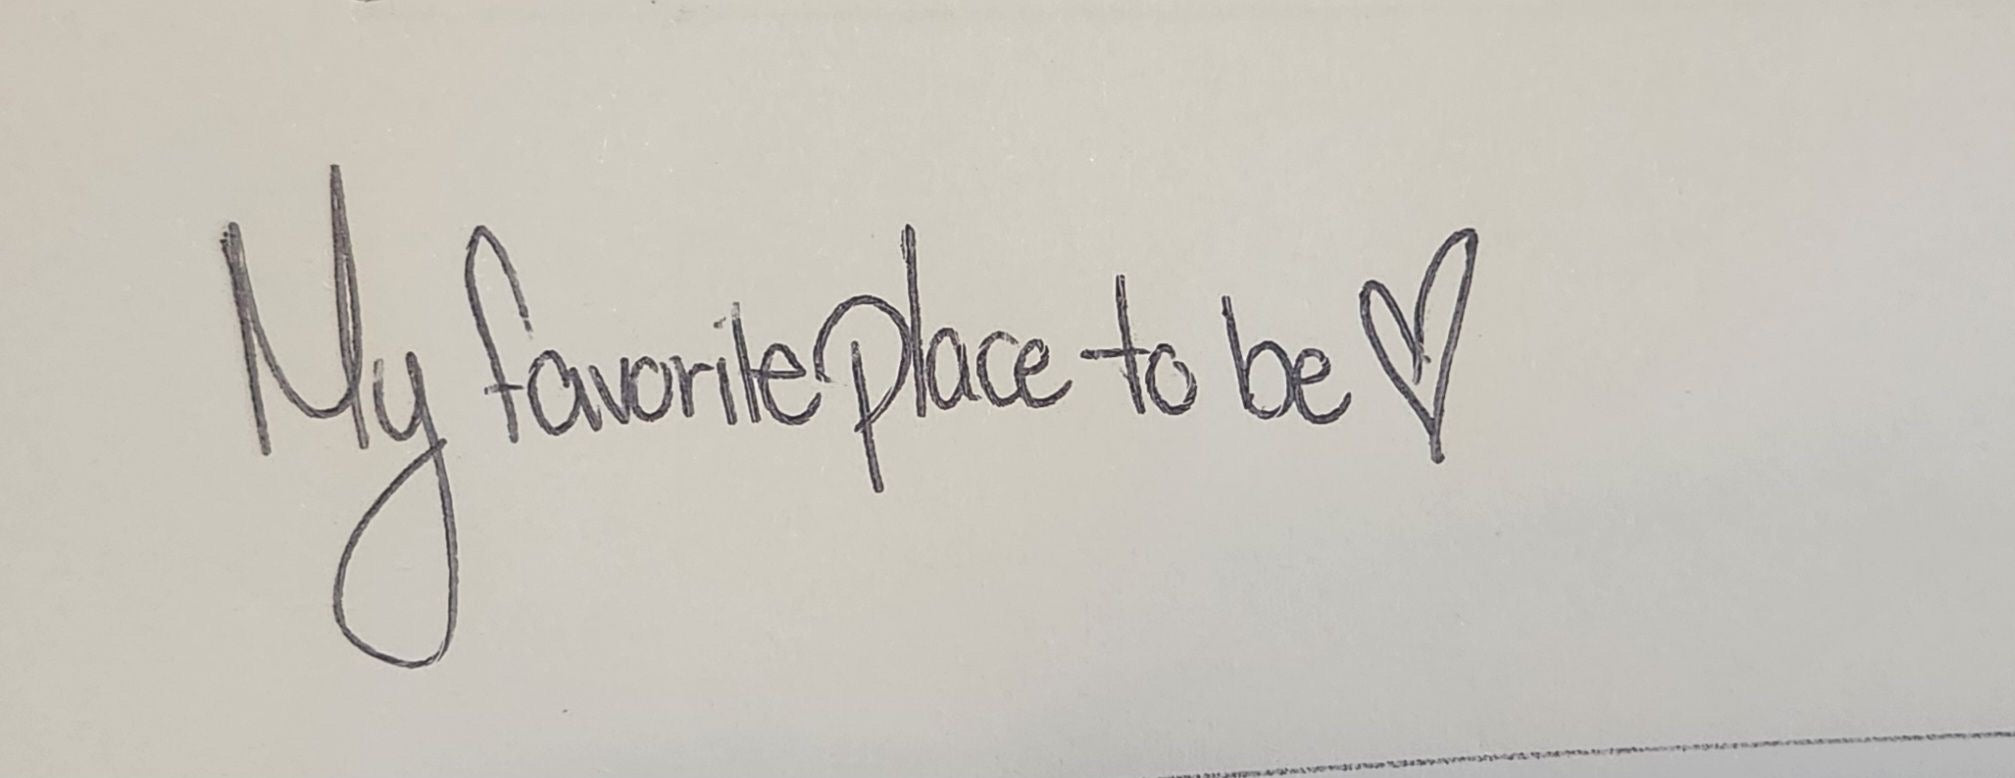 My favorite place to be ♡